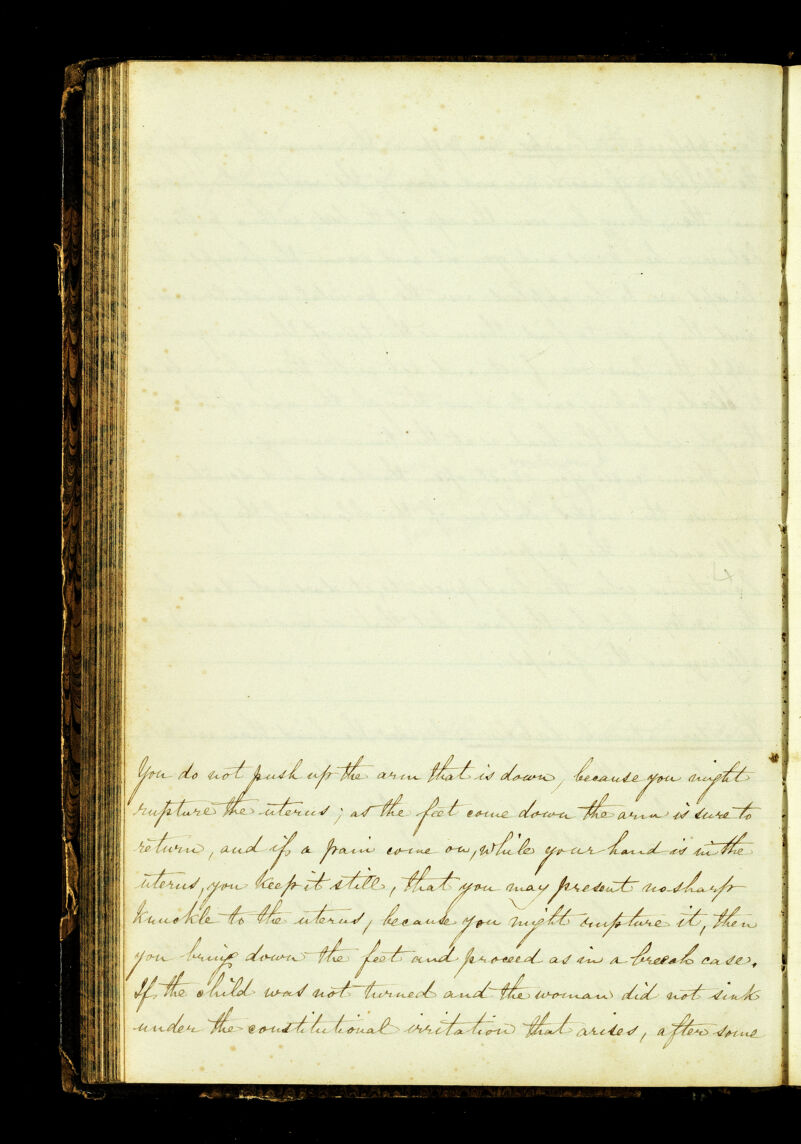 You do not push up the arm that is down, because you might
rupture the uterus; as the feet come down the arm is sure to
return, and if a pain come on, while your hand is in the
uterus, you keep it still, that you may present no sharp
knuckle to the uterus, because you might rupture it, then
you bring down the feet and proceed as in a breech case.
If the child was not turned and the woman did not sink
under the constitutional irritation that arises, after some